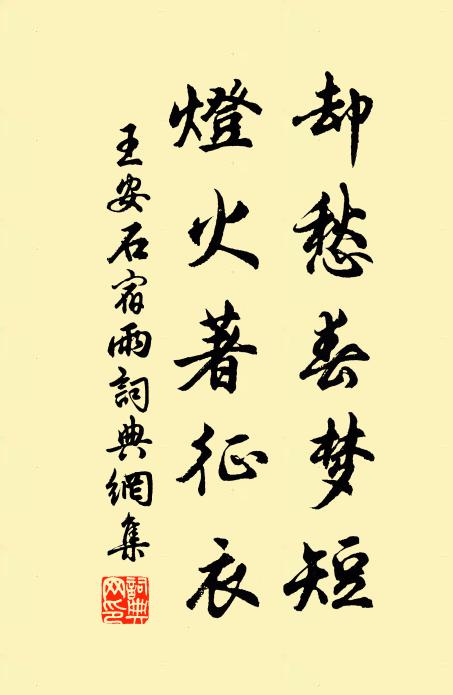 却愁春梦短
燈火著征衣
王安石宿雨詞典網集
詞典